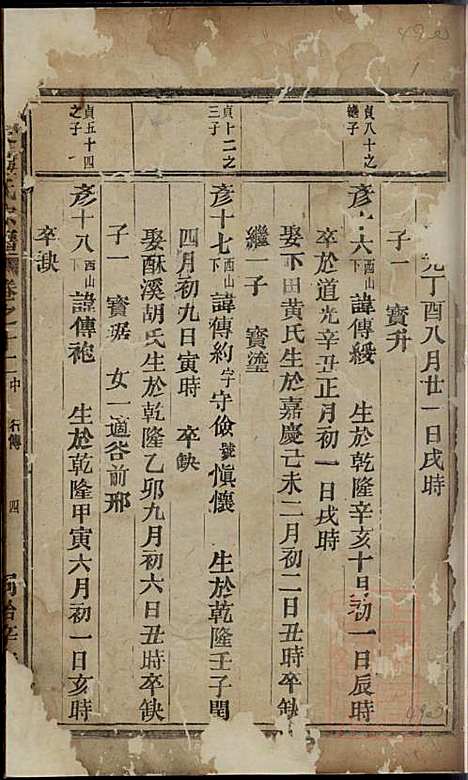 光丁酉八月廿一日戌時
子一 寳升
貞八十之
繼子
彥十六西山下 諱傳綬 生於乾隆辛亥十月初一日辰時
卒於道光辛丑正月初一日戌時
娶下田黃氏生於嘉慶己未二月初二日丑時卒缺
繼一子 寳鎏
貞十二之
三子
彥十七西山下 諱傳約字守儉號愼懷 生於乾隆壬子閏
四月初九日寅時 卒缺
娶酥溪胡氏生於乾隆乙卯九月初六日丑時卒缺
子一 寳琚 女一適峇前邢
貞五十四
之子一
彥十八西山下 諱傳袍 生於乾隆甲寅六月初一日亥時
卒缺
宗譜 卷之十二中 行傳 四